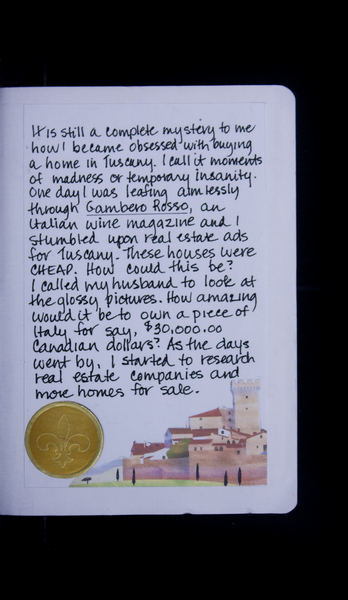 It is still a complete mystery to me
how I became obsessed with buying
a home in Tuscany. I call it moments
of madness or temporary insanity.
One day I was leafing aimlessly
through Gambero Rosso, an
Italian wine magazine and I
stumbled upon real estate ads
for Tuscany. These houses were
CHEAP. How could this be?
I called my husband to look at
the glossy pictures. How amazing
would it be to own a piece of
Italy for say, $30,000.00
Canadian dollars? As the days
went by, I started to research
real estate companies and
more homes for sale.